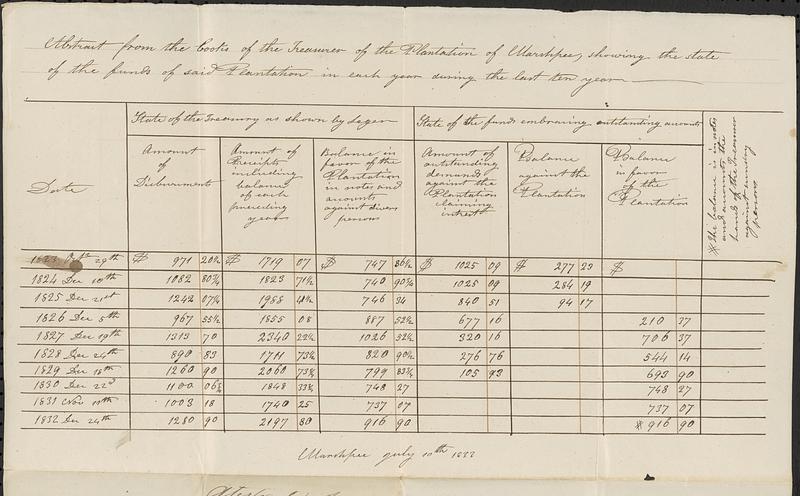 Abstract from the books of the Treasurer of the Plantation of Marshpee, showing the state
of the funds of said Plantation in each year during the last ten years
State of the Treasury as shown by Leger
State of the funds embracing outstanding accounts
Date
Amount
of
Disbursments
Amount of
Receipts
including
balance
of each
preceding
years
Balance in
favor of the
Plantation
in notes and
accounts
against divers
persons
Amount of
outstanding
demands
against the
Plantation
claiming
interest
Balance
against the
Plantation
Balance
in favor
of the
Plantation
* the balance is in notes
and accounts in the
hands of the Treasurer
against sundry
persons
1823 Octr 29th $ 971 20½ $ 1719 07 $ 747 86½ $ 1025 09 $ 277 23 $
1824 Dec 10th 1082 80¾ 1823 71½ 740 90¾ 1025 09 284 19
1825 Dec 21st 1242 07¼ 1988 41½ 746 34 840 51 94 17
1826 Dec 5th 967 55½ 1855 08 887 52½ 677 16 210 37
1827 Dec 19th 1313 70 2340 22½ 1026 52½ 320 16 706 37
1828 Dec 24th 890 83 1711 73½ 820 90½ 276 76 544 14
1829 Dec 18th 1260 90 2060 73¾ 799 83¾ 105 93 693 90
1830 Dec 22d 1100 06½ 1848 33½ 748 27 748 27
1831 Nov 1003 18 1740 25 737 07 737 07
1832 Dec 24th 1280 90 2197 80 916 90 * 916 90
Marshpee July 10th 1833